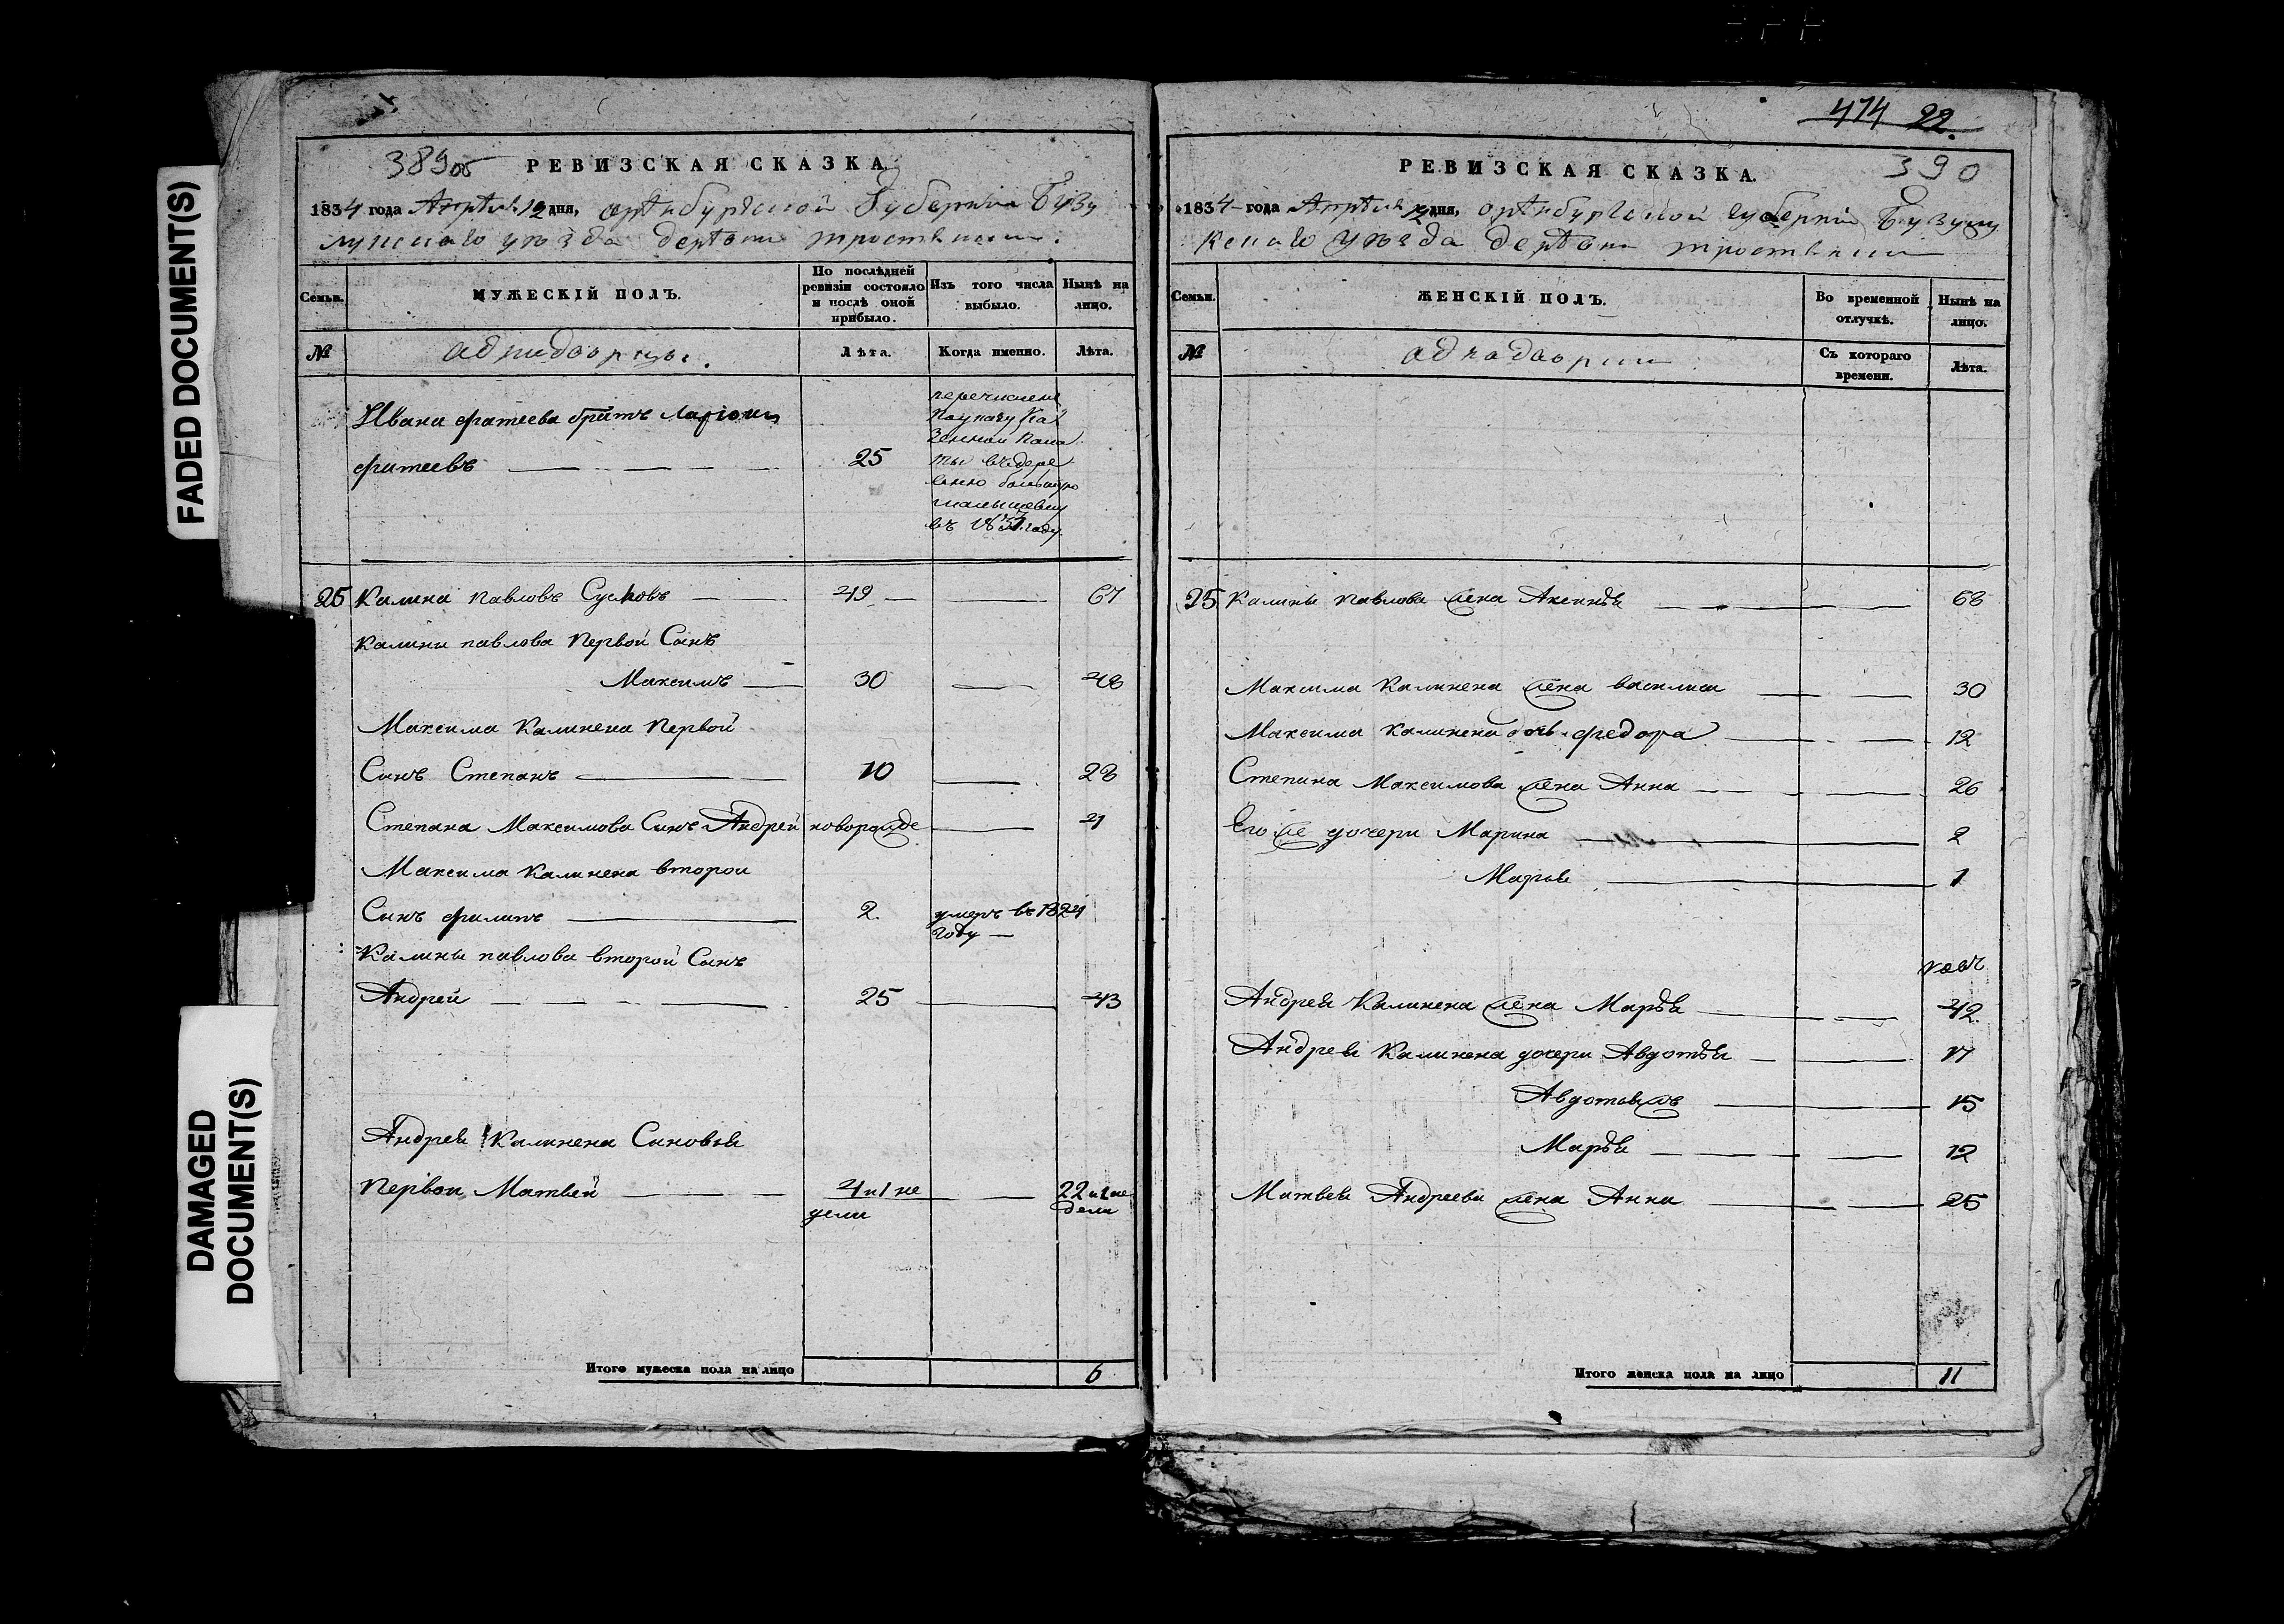 FADED DOCUMENT(S)
DAMAGED
DOCUMENT(S)
389об РЕВИЗСКАЯ СКАЗКА
1834 года Апреля 12 дня, оренбургской Губернии Бузу
лускаго уезда деревни тростянки.
Семьи.
МУЖЕСКІЙ ПОЛЪ.
По послѣдней ревизіи состояло и послѣ оной прибыло.
Изъ того числа выбыло.
Нынѣ на лицо.
№
аднидворцы.
Лѣта.
Когда именно.
Лѣта.
Ивана фатеева братъ Ларіонъ
фатеевъ 25
перечислен
по указу Ка
зенной пала
ты въ дере
вню большую
малышевку
въ году
25 Калина павловъ Сусловъ 49 67
Калины павлова Первой Сынъ
Максимъ 30 48
Максима Калинена Первой
Сынъ Степанъ 10 28
Степана Максимова Сынъ Андрей новорожде 4
Максима Калинена второи
Сынъ филипъ 2. умеръ въ 1824
году
Калины павлова второй Сынъ
Андрей 25 43
Андрея Калинена Сыновья
Первои Матвей 4 и 1 не 22 и 1 не
дели дели
Итого мужеска пола на лицо 6
474 22.
РЕВИЗСКАЯ СКАЗКА. 390
1834 года Апреля 12 дня, оренбургской губерніи Бузулу
кскаго уезда деревни тростянки
Семьи.
ЖЕНСКІЙ ПОЛЪ.
Во временной отлучкѣ.
Нынѣ на лицо.
№
аднадворки
Съ котораго времени.
Лѣта.
25 Калины павлова жена Аксинья 68
Максима Калинена жена василиса 30
Максима Калинена дочь федора 12
Степана Максимова жена Анна 26
Его же дочери Марина 2
Марья 1
Андрея Калинена жена Марья 42.
Андрея Калинена дочери Авдотья 17
Авдотья жъ 15
Марья 12
Матвея Андреева жена Анна 25
Итого женска пола на лицо 11